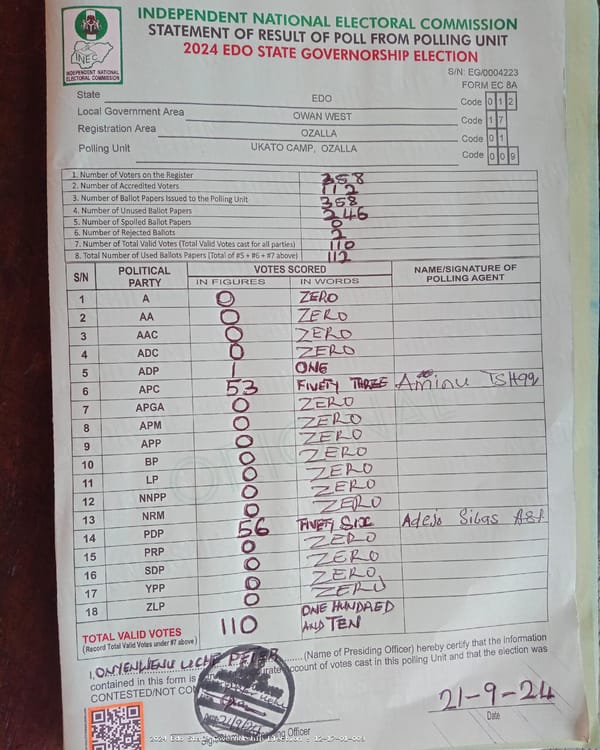 INDEPENDENT NATIONAL ELECTORAL COMMISSION
STATEMENT OF RESULT OF POLL FROM POLLING UNIT
2024 EDO STATE GOVERNORSHIP ELECTION
INEC
INDEPENDENT NATIONAL
ELECTORAL COMMISSION
S/N: EG/0004223
FORM EC 8A
State EDO Code 0 1 2
Local Government Area OWAN WEST Code 1 7
Registration Area OZALLA Code 0 1
Polling Unit UKATO CAMP, OZALLA Code 0 0 9
1. Number of Voters on the Register 358
2. Number of Accredited Voters 112
3. Number of Ballot Papers Issued to the Polling Unit 358
4. Number of Unused Ballot Papers 246
5. Number of Spoiled Ballot Papers 0
6. Number of Rejected Ballots 2
7. Number of Total Valid Votes (Total Valid Votes cast for all parties) 110
8. Total Number of Used Ballots Papers (Total of #5 + #6 + #7 above) 112
S/N POLITICAL PARTY VOTES SCORED NAME/SIGNATURE OF POLLING AGENT
IN FIGURES IN WORDS
1 A 0 ZERO
2 AA 0 ZERO
3 AAC 0 ZERO
4 ADC 0 ZERO
5 ADP 1 ONE
6 APC 53 FIVETY THREE Aminu
7 APGA 0 ZERO
8 APM 0 ZERO
9 APP 0 ZERO
10 BP 0 ZERO
11 LP 0 ZERO
12 NNPP 0 ZERO
13 NRM 0 ZERO
14 PDP 56 FIVETY SIX Adejo Sibas
15 PRP 0 ZERO
16 SDP 0 ZERO
17 YPP 0 ZERO
18 ZLP 0 ZERO
TOTAL VALID VOTES 110 ONE HUNDRED AND TEN
(Record Total Valid Votes under #7 above)
I, ONYENWENU UCHE PETER (Name of Presiding Officer) hereby certify that the information
contained in this form is account of votes cast in this polling Unit and that the election was
CONTESTED/NOT
21-9-24
Date
Officer
2024 Edo State Governorship Election